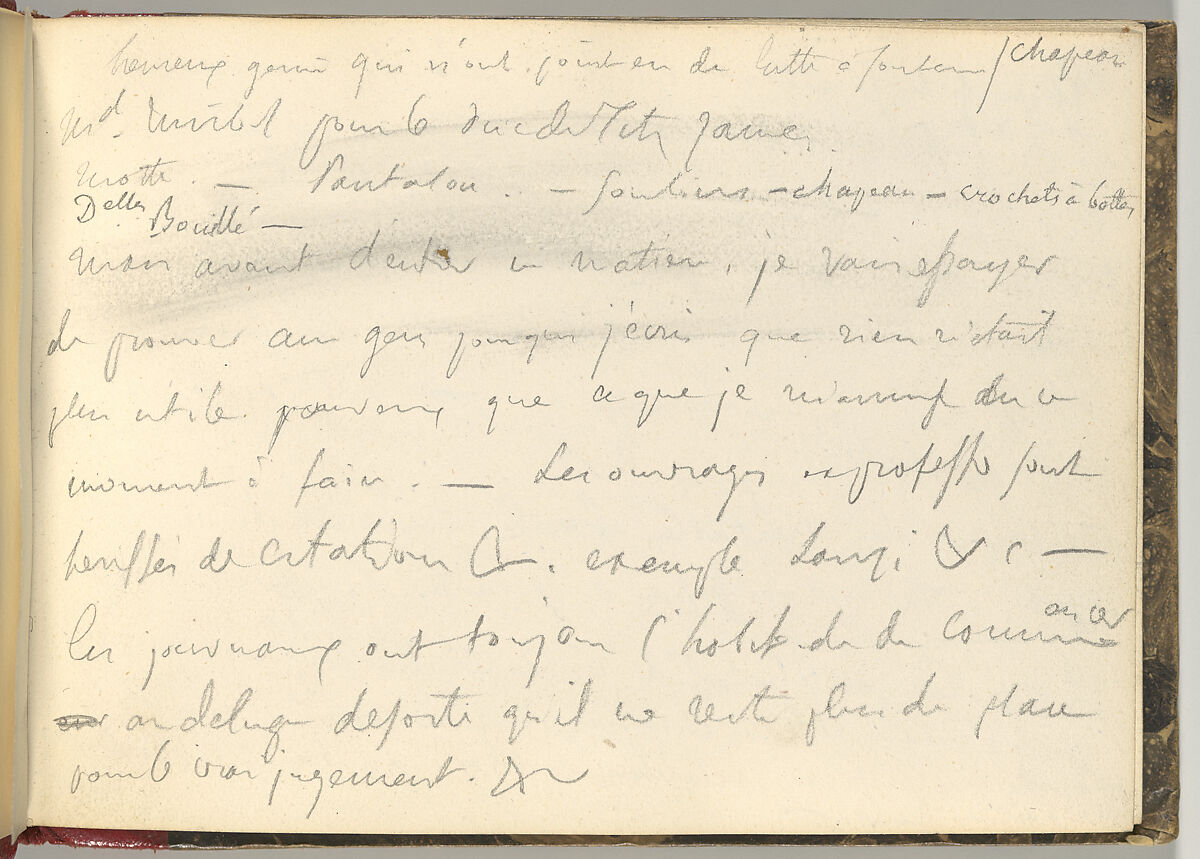 heureux genie qui n'ont point eu de lutte a soutenir / chapeau
Md. Mirbel pour le duc de Fitz James
Motte. — Pantalon. — souliers — chapeau — crochets à bottes
Delles Bouillé —
Mais avant d'entrer en matière, je vais essayer
de prouver aux gens pour qui j'écris que rien n'etait
plus utile pour eux que ce que je m'avise dans ce
moment à faire. — Les ouvrages ex professo sont
herissés de citations &. exemple Lanzi &c —
les journaux ont toujours l'habitude de commencer
au deluge de sorte qu'il ne reste plus de place
pour le vrai jugement. &